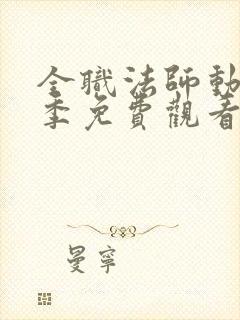 全職法師動
季免費觀看
曼寧